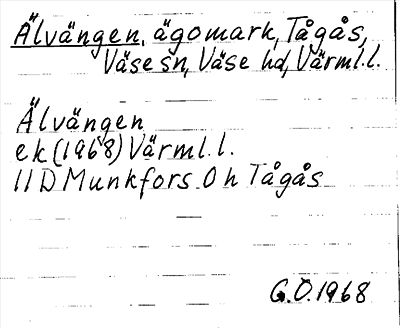 Älvängen, ägomark, Tågås,
Väse sn, Väse hd, Värml.l.
Älvängen
ek (1968) Värml.l.
11D Munkfors 0h Tågås
G.O. 1968